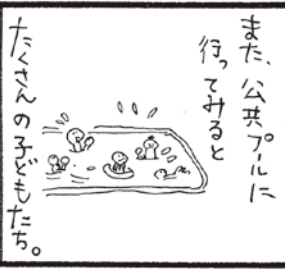 また、公共プールに
行ってみると
たくさんの子どもたち。